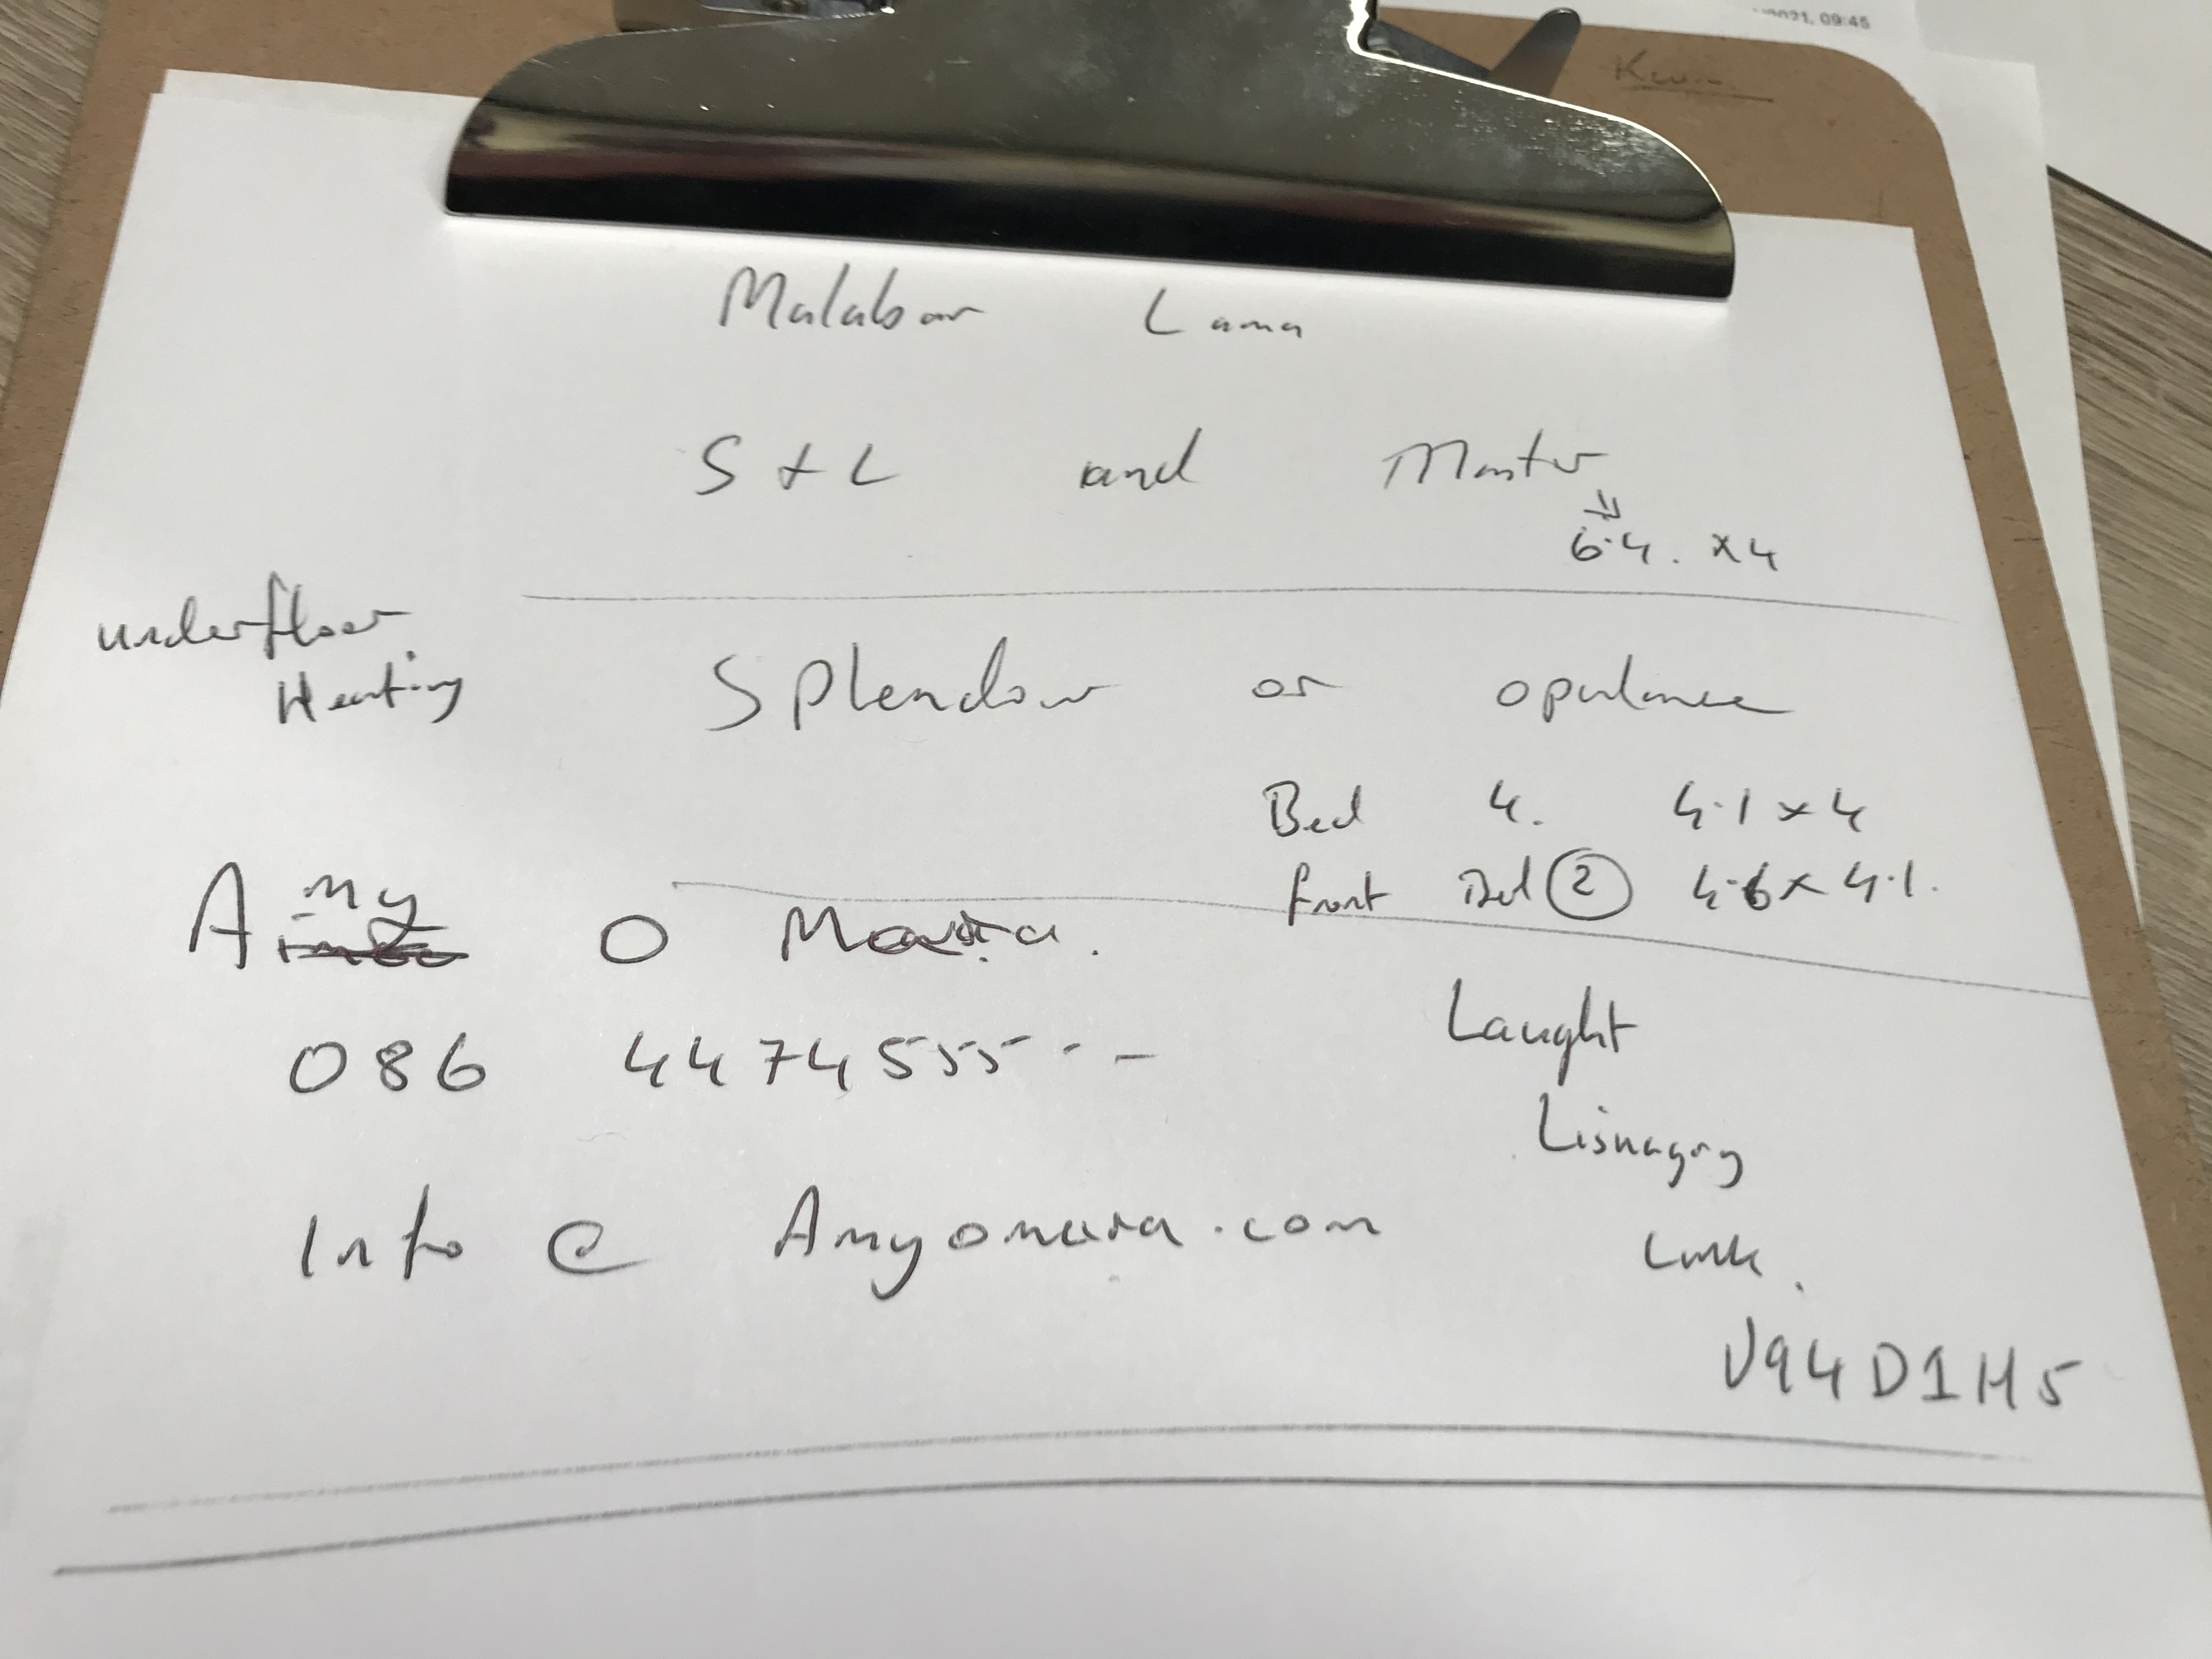 2021, 09:45
Malabar Lama
S + L and Master
6.4. x4
underfloor
Heating
Splendour or opulance
Bed 4. 4.1 x 4
front Bed 2 4.6 x 4.1.
Amy O Mara.
086 4474555 - -
Info @ Amyomara.com
Laught
Lisnagry
Lmk.
V94D1H5